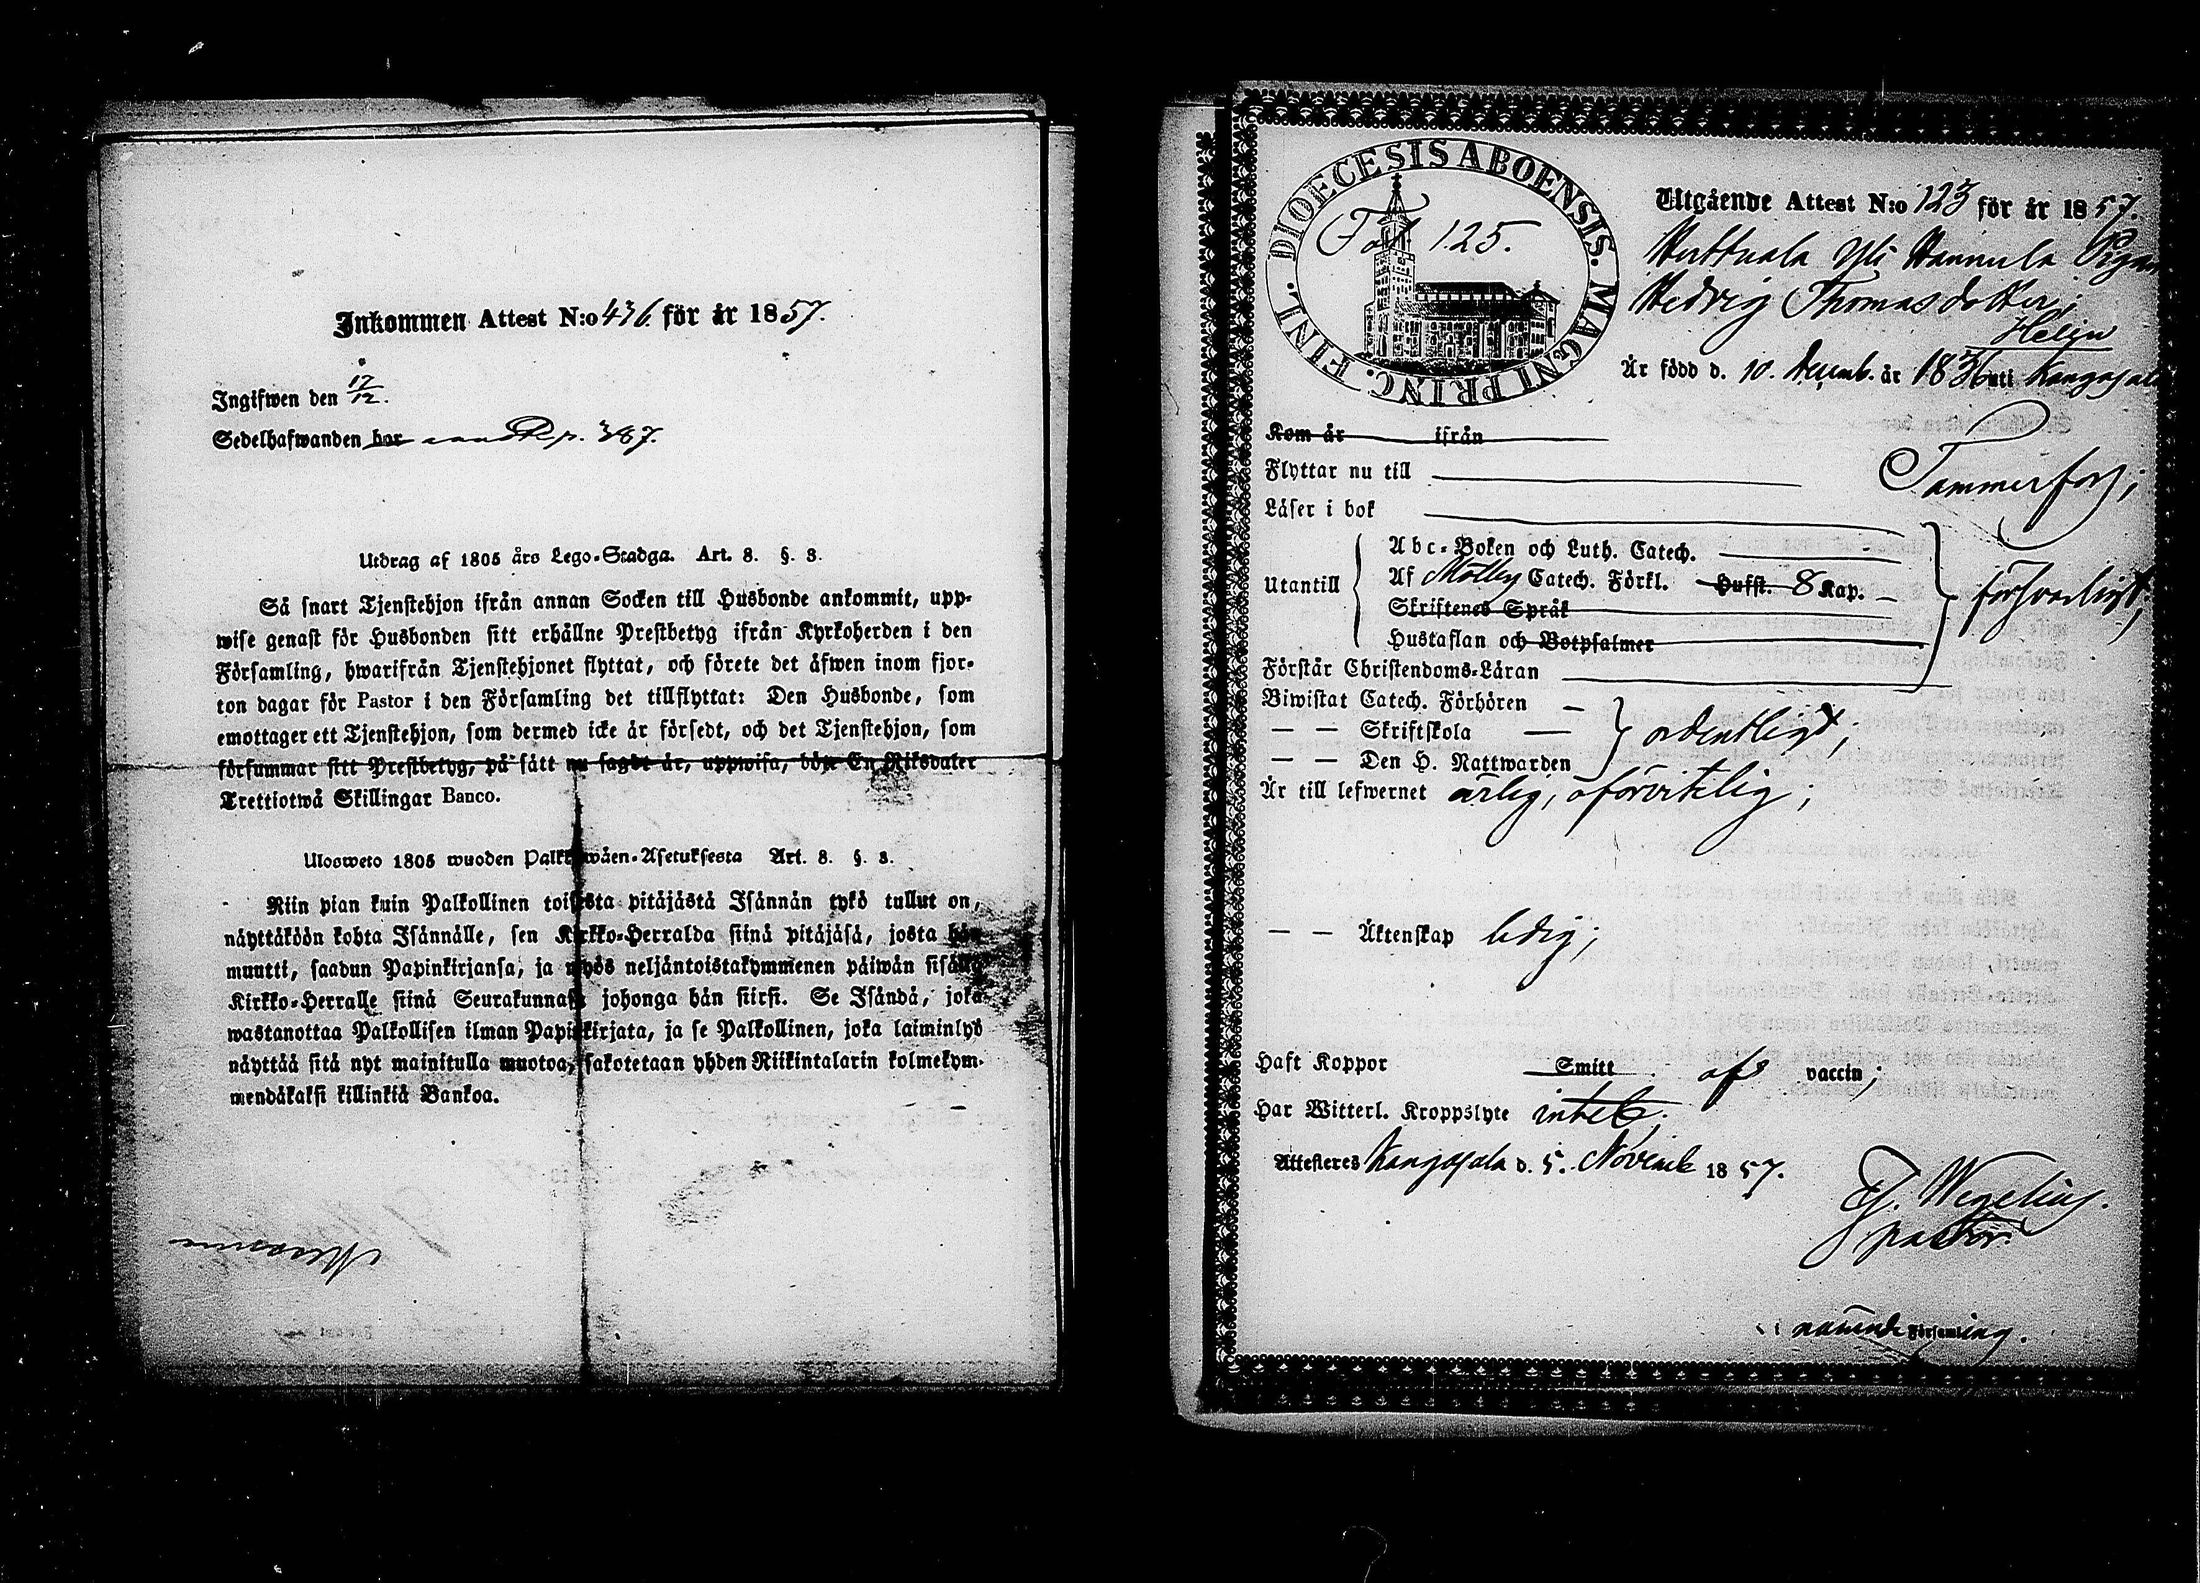 Inkommen Attest N:o 436. för år 1857.
Ingifwen den 17/12.
Sedelhafwanden bor
Utdrag af 1805 års Lego-Stadga. Art. 8. §. 3.
Så snart Tjenstehjon ifrån annan Socken till Husbonde ankommit, upp-
wise genast för Husbonden sitt erhållne Prestbetyg ifrån Kyrkoherden i den
Församling, hwarifrån Tjenstehjonet flyttat, och förete det äfwen inom fjor-
ton dagar för Pastor i den Församling det tillflyttat: Den Husbonde, som
emottager ett Tjenstehjon, som dermed icke är försedt, och det Tjenstehjon, som
försummar sitt Prestbetyg, på sätt nu sagdt är, uppwisa, böte En Riksdaler
Trettiotwå Skillingar Banco.
Ulosweto 1805 wuoden Palkkawäen-Asetuksesta Art. 8. §. 3.
Niin pian kuin Palkollinen toisesta pitäjästä Isännän tykö tullut on,
näyttäköön kohta Isännälle, sen Kirkko-Herralda siinä pitäjäsä, josta hän
muutti, saadun Papinkirjansa, ja myös neljäntoistakymmenen päiwän sisällä
Kirkko-Herralle siinä Seurakunnasa johonga hän siirsi. Se Isändä, joka
wastanottaa Palkollisen ilman Papinkirjata, ja se Palkollinen, joka laiminlyö
näyttää sitä nyt mainitulla muotoa, sakotetaan yhden Riikintalarin kolmekym-
mendäkaksi killinkiä Bankoa.
DIOECESIS ABOENSIS. MAGNI PRINC. FINL.
Fol 125.
Utgående Attest N:o 123 för år 1857.
Huttuala Yli Hannula Pigan
Hedvig Thomasdotter;
Helin
Är född d. 10. Decemb. år 1836 uti Kangasala
Kom år ifrån
Flyttar nu till Tammerfors;
Läser i bok
Utantill
Abc-Boken och Luth. Catech.
Af Möllers Catech. Förkl. Hufst. 8 Kap.
Skriftenes Språk
Hustaflan och Botpsalmer
försvarligt;
Förstår Christendoms-Läran
Biwistat Catech. Förhören
— — Skriftskola
— — Den H. Nattwarden
ordentligt;
Är till lefwernet ärlig, oförvitelig;
— — Äktenskap ledig;
Haft Koppor Smitt afs vaccin;
Har Witterl. Kroppslyte intet;
Attesteres Kangasala d. 5. Novemb 1857.
Wegelius.
pastor.
Församling.